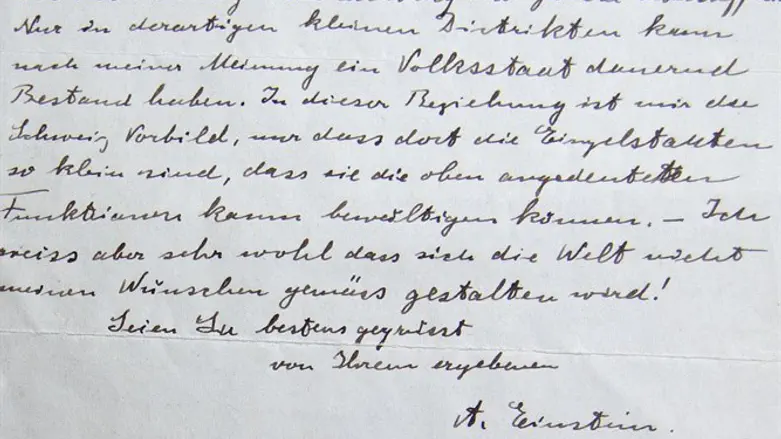 Nur in derartigen kleinen Distrikten kann
nach meiner Meinung ein Volksstaat dauernd
Bestand haben. In dieser Beziehung ist mir die
Schweiz Vorbild, nur dass dort die Einzelstaaten
so klein sind, dass sie die oben angedeuteten
Funktionen kaum bewältigen können. – Ich
weiss aber sehr wohl dass sich die Welt nicht
meinen Wünschen gemäss gestalten wird!
Seien Sie bestens gegrüsst
von Ihrem ergebenen
A. Einstein.